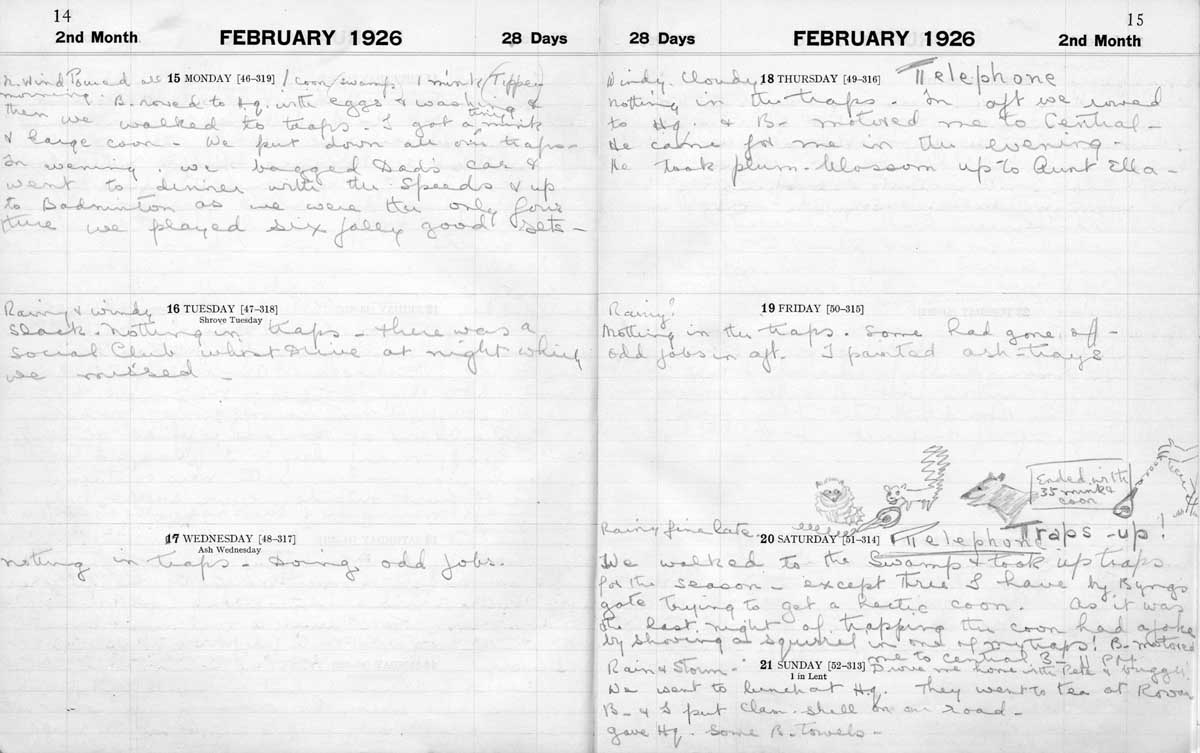 14
2nd Month FEBRUARY 1926 28 Days
15 MONDAY [46-319] 1 coon (swamp) 1 mink (Tippey
N. Wind Poured all
morning. B. rowed to Hq. with eggs & washing &
then we walked to traps. I got a tiny mink
& large coon - We put down all our traps -
In evening we bagged Dad's car &
went to dinner with the Speeds & up
to Badminton as we were the only four
there we played six jolly good sets -
16 TUESDAY [47-318]
Shrove Tuesday
Rainy & windy
Slack. Nothing in traps - there was a
Social Club whist Drive at night which
we missed -
17 WEDNESDAY [48-317]
Ash Wednesday
nothing in traps - Doing odd jobs.
15
28 Days FEBRUARY 1926 2nd Month
Windy. Cloudy 18 THURSDAY [49-316] Telephone
Nothing in the traps. In aft we rowed
to Hq. & B- motored me to Central -
He came for me in the evening.
He took plum-blossom up to Aunt Ella -
19 FRIDAY [50-315]
Rainy!
Nothing in the traps. Some had gone off -
odd jobs in aft. I painted ash-trays
Ended with
35 mink &
coon
Rainy fine late 20 SATURDAY [51-314] Telephone Traps-up!
We walked to the Swamp & took up traps
for the season - except three I have by Byngs
gate trying to get a hectic coon. As it was
the last night of trapping the coon had a joke
by shoving a squirrel in one of my traps! B. motored
me to Central B- 11 P.M.
Rain & Storm - 21 SUNDAY [52-313] Drove me home with Pete &
1 in Lent
We went to lunch at Hq. They went to tea at Rowan
B- & I put clam-shell on our road -
gave Hq. some B. Towels -